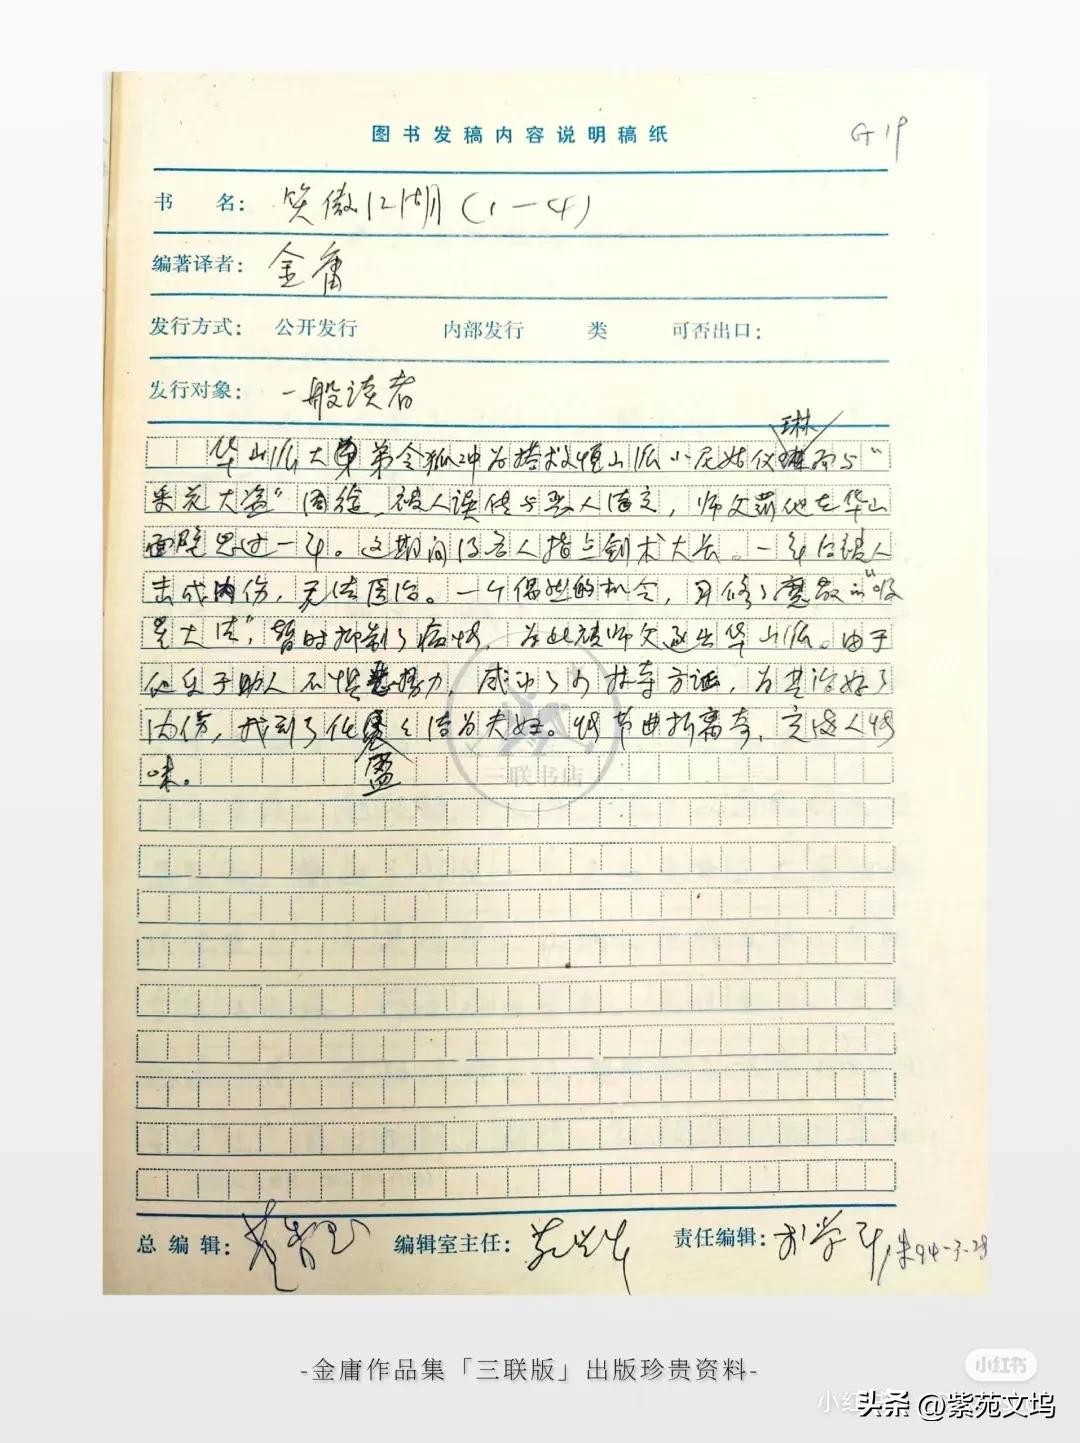 图书发稿内容说明稿纸
G 19
书 名： 笑傲江湖（1—4）
编著译者： 金庸
发行方式： 公开发行 内部发行 类 可否出口：
发行对象： 一般读者
琳
华山派大弟令狐冲为搭救恒山派小尼姑仪 而与“
采花大盗”周旋，被人误传与恶人结交，师父罚他在华山
面壁思过一年。这期间得高人指点剑术大长。一年后被人
击成内伤，无法医治。一个偶然的机会，习修了魔教的“吸
星大法”，暂时抑制了病情，为此被师父逐出华山派。由于
他乐于助人不惧恶势力，感动了 方证，为其治好了
内伤，找到了任 结为夫妇。情节曲折离奇， 人情
盈
味。
三联书店
总编辑： 编辑室主任： 责任编辑： 94-3-28
-金庸作品集「三联版」出版珍贵资料-
小红书
小红
头条 @紫苑文坞